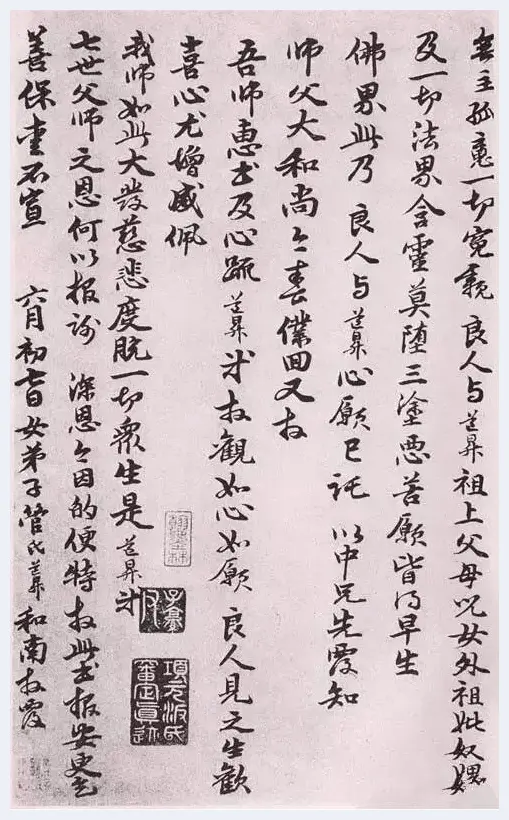 無主孤魂一切冤親 良人与道昇祖上父母兒女外祖妣奴婢
及一切法界含靈莫墮三塗惡苦願皆得早生
佛界此乃 良人与道昇心願已託 以中兄先覆知
師父大和尚今専僕回又拜
吾師惠書及心疏道昇等拜觀如心如願 良人見之生歡
喜心尤增感佩
我師如此大發慈悲度脫一切衆生是道昇等
七世父師之恩何以報謝 深恩今因的便特拜此書報安更乞
善保重不宣 六月初七日女弟子管氏道昇和南拜覆
項元汴氏審定真跡